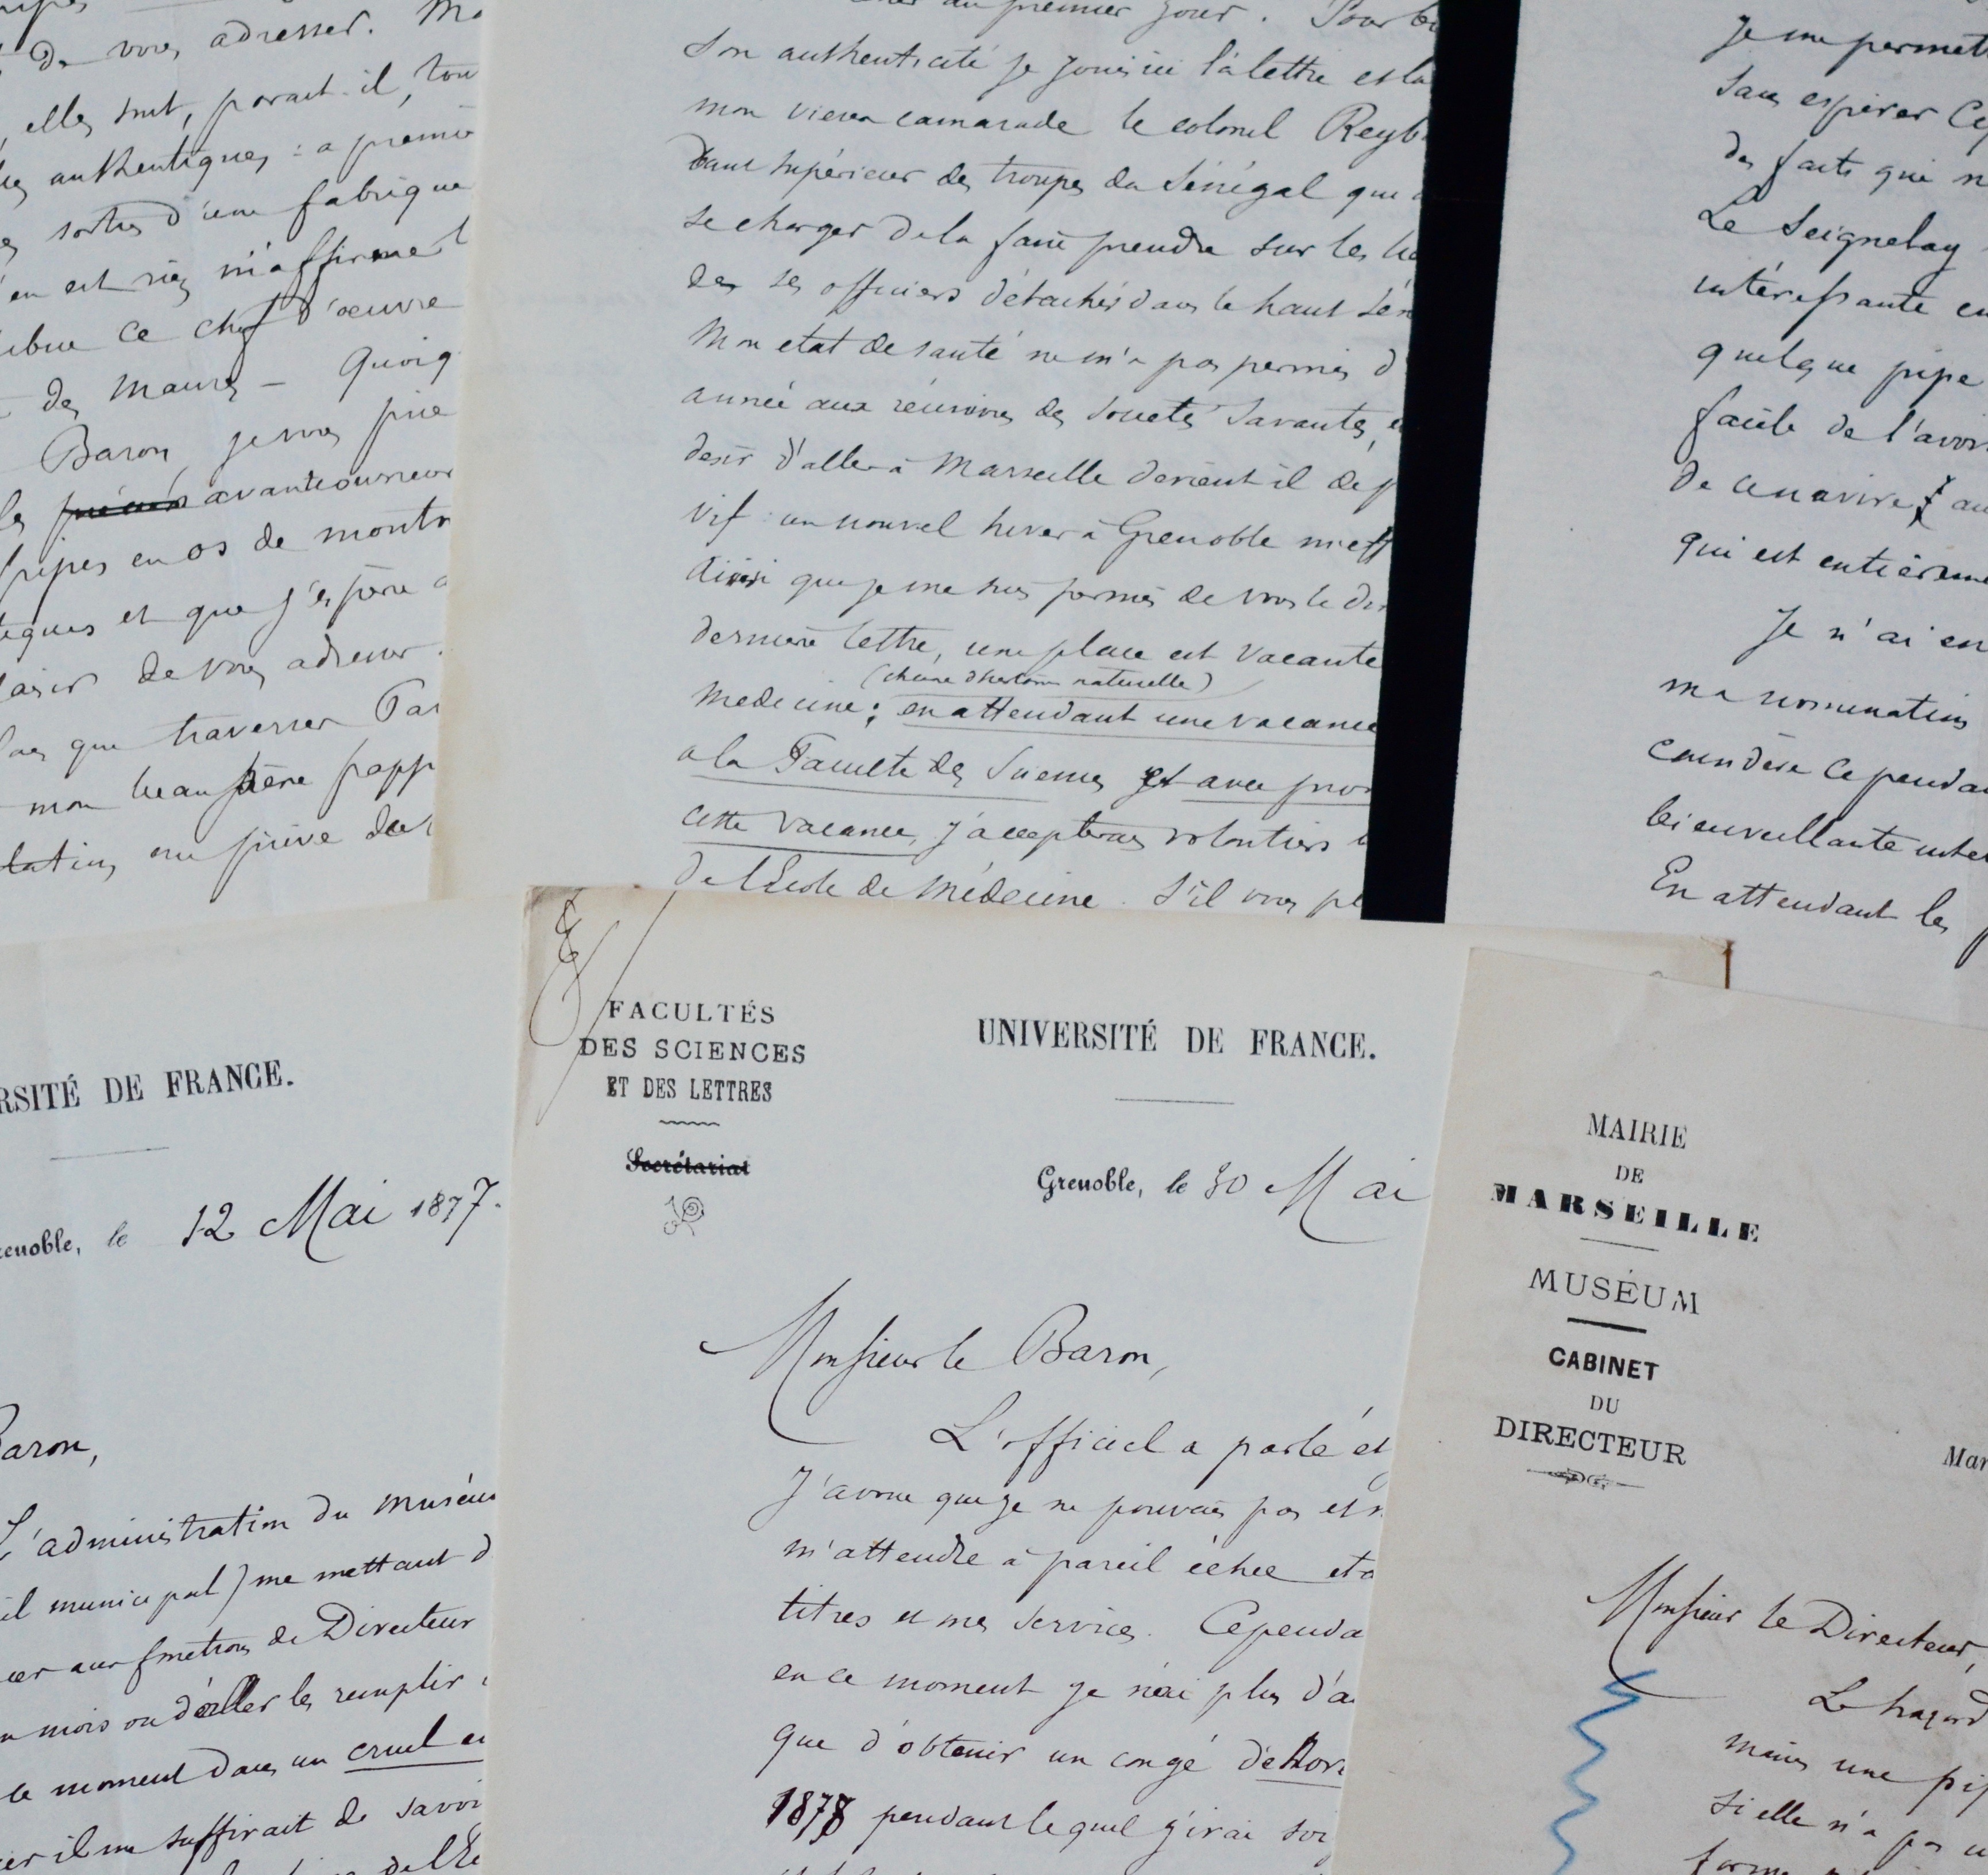 de vous adresser.
elles sont, parait-il,
authentiques : a
sorties d'une fabrique
en est rien m'affirme
ce chef d'œuvre
des Maures — Quoiq
Baron, je vous prie
avantcoureur
pipes en os de
tiques et que j'espère
de vous adresser.
que traverser Par
mon beau père
au premier jour. Pour
son authenticité je joins ici la lettre
mon vieux camarade le colonel Reyb
dant supérieur des troupes du Sénégal que
se charger de la faire prendre sur les
des ses officiers détachés dans le haut Sén
Mon etat de santé ne m'a pas permis d'
année aux réunions des Sociétés Savantes,
desir d'aller à Marseille devient il de p
vif : un nouvel hiver à Grenoble m'eff
ainsi que je me suis permis de vous le di
dernière lettre, une place est vacante
(chaire d'histoire naturelle)
Medecine ; en attendant une vacance
a la Faculté des Sciences et avec pro
cette vacance, j'accepterais volontiers
de l'Ecole de Médecine. S'il vous pl
Je me permet
sans espérer
des faits qui n
Le Seignelay
intéressante
quelque pipe
facile de l'avoir
de ce navire
qui est entièreme
Je n'ai en
ma nomination
cependa
bienveillante
En attendant les
RSITÉ DE FRANCE.
enoble, le 12 Mai 1877.
Baron,
L'administration du Muséum
il municipal) me mettant d
aux fonctions de Directeur
mois ou d'aller les remplir
ce moment dans un cruel
il me suffirait de savoi
de l'Ec
FACULTÉS
DES SCIENCES
ET DES LETTRES
Secrétariat
UNIVERSITÉ DE FRANCE.
Grenoble, le 30 Mai
Monsieur le Baron,
L'officiel a parlé et
J'avoue que je ne pouvais pas
m'attendre à pareil échec
titres et mes services. Cependa
en ce moment je n'ai plus d'a
que d'obtenir un congé
1878 pendant lequel j'irai
MAIRIE
DE
MARSEILLE
MUSÉUM
CABINET
DU
DIRECTEUR
Mar
Monsieur le Directeur,
Le hazard
mains une pip
si elle n'a pas
forme